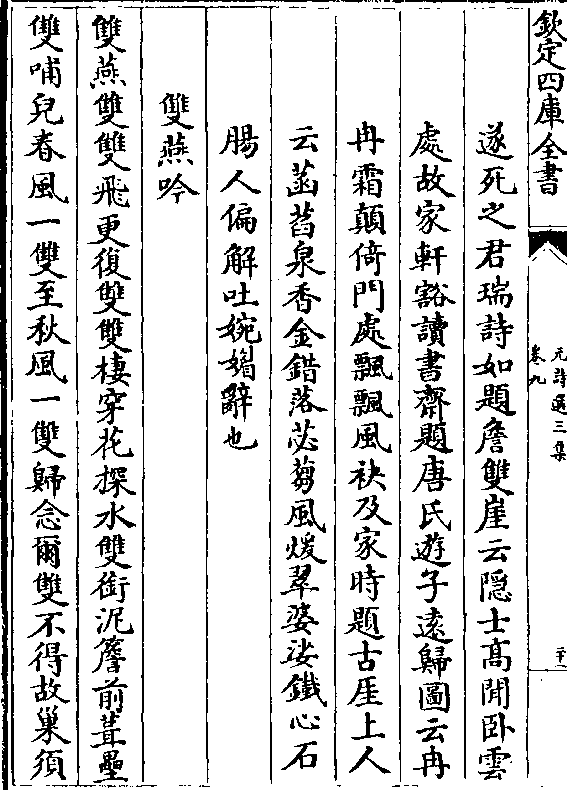 欽定四庫全書
元詩選三集
卷九
遂死之君瑞詩如題詹雙崖云隱士髙閒臥雲
處故家軒豁讀書齋題唐氏遊子逺歸圖云冉
冉霜顛倚門處飄飄風袂及家時題古厓上人
云菡萏泉香金錯落苾蒭風煖翠婆娑鐵心石
腸人偏解吐婉媚辭也
雙燕吟
雙燕雙雙飛更復雙雙棲穿花探水雙銜泥簷前葺壘
雙哺兒春風一雙至秋風一雙歸念爾雙不得故巢須